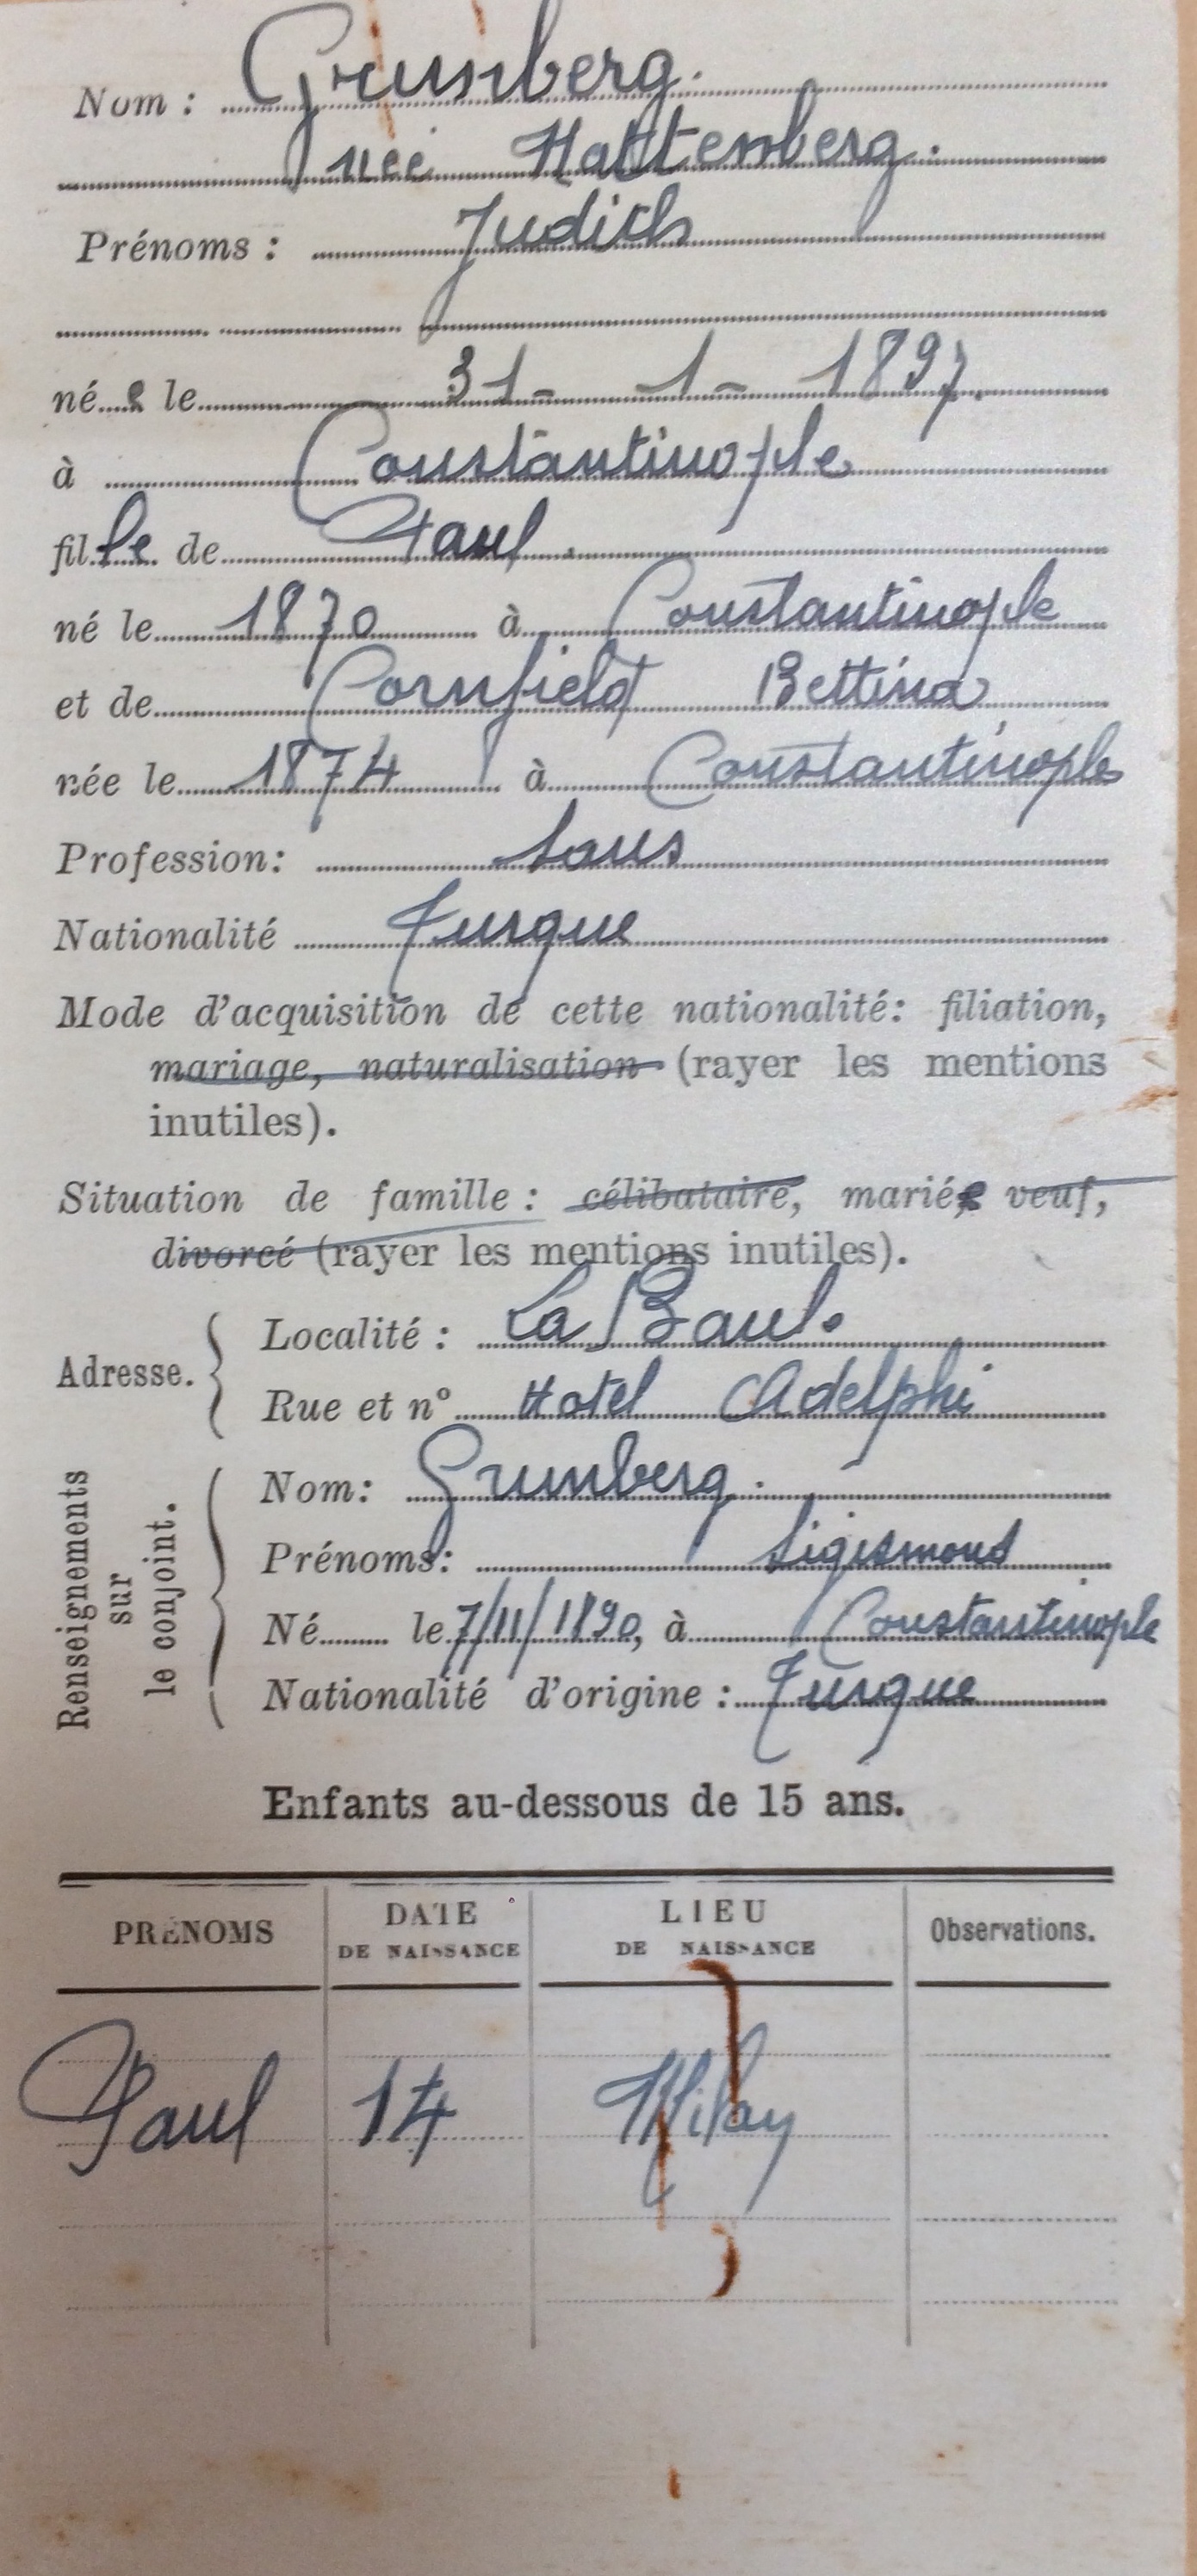 Nom : Grunberg.
née Hattemberg.
Prénoms : Judith
née le 31 - 1 - 1897.
à Constantinople
fille de Paul.
né le 1870 à Constantinople
et de Cornfield Bettina
née le 1874 à Constantinople
Profession: sans
Nationalité Turque
Mode d'acquisition de cette nationalité: filiation,
mariage, naturalisation (rayer les mentions
inutiles).
Situation de famille : célibataire, mariée veuf,
divorcé (rayer les mentions inutiles).
Adresse.
Localité : La Baule
Rue et n° Hotel Adelphi
Renseignements
sur
le conjoint.
Nom: Grunberg.
Prénoms: Sigismond
Né le 7/11/1890, à Constantinople
Nationalité d'origine : Turque
Enfants au-dessous de 15 ans.
PRÉNOMS DATE DE NAISSANCE LIEU DE NAISSANCE Observations.
Paul 14 Milan